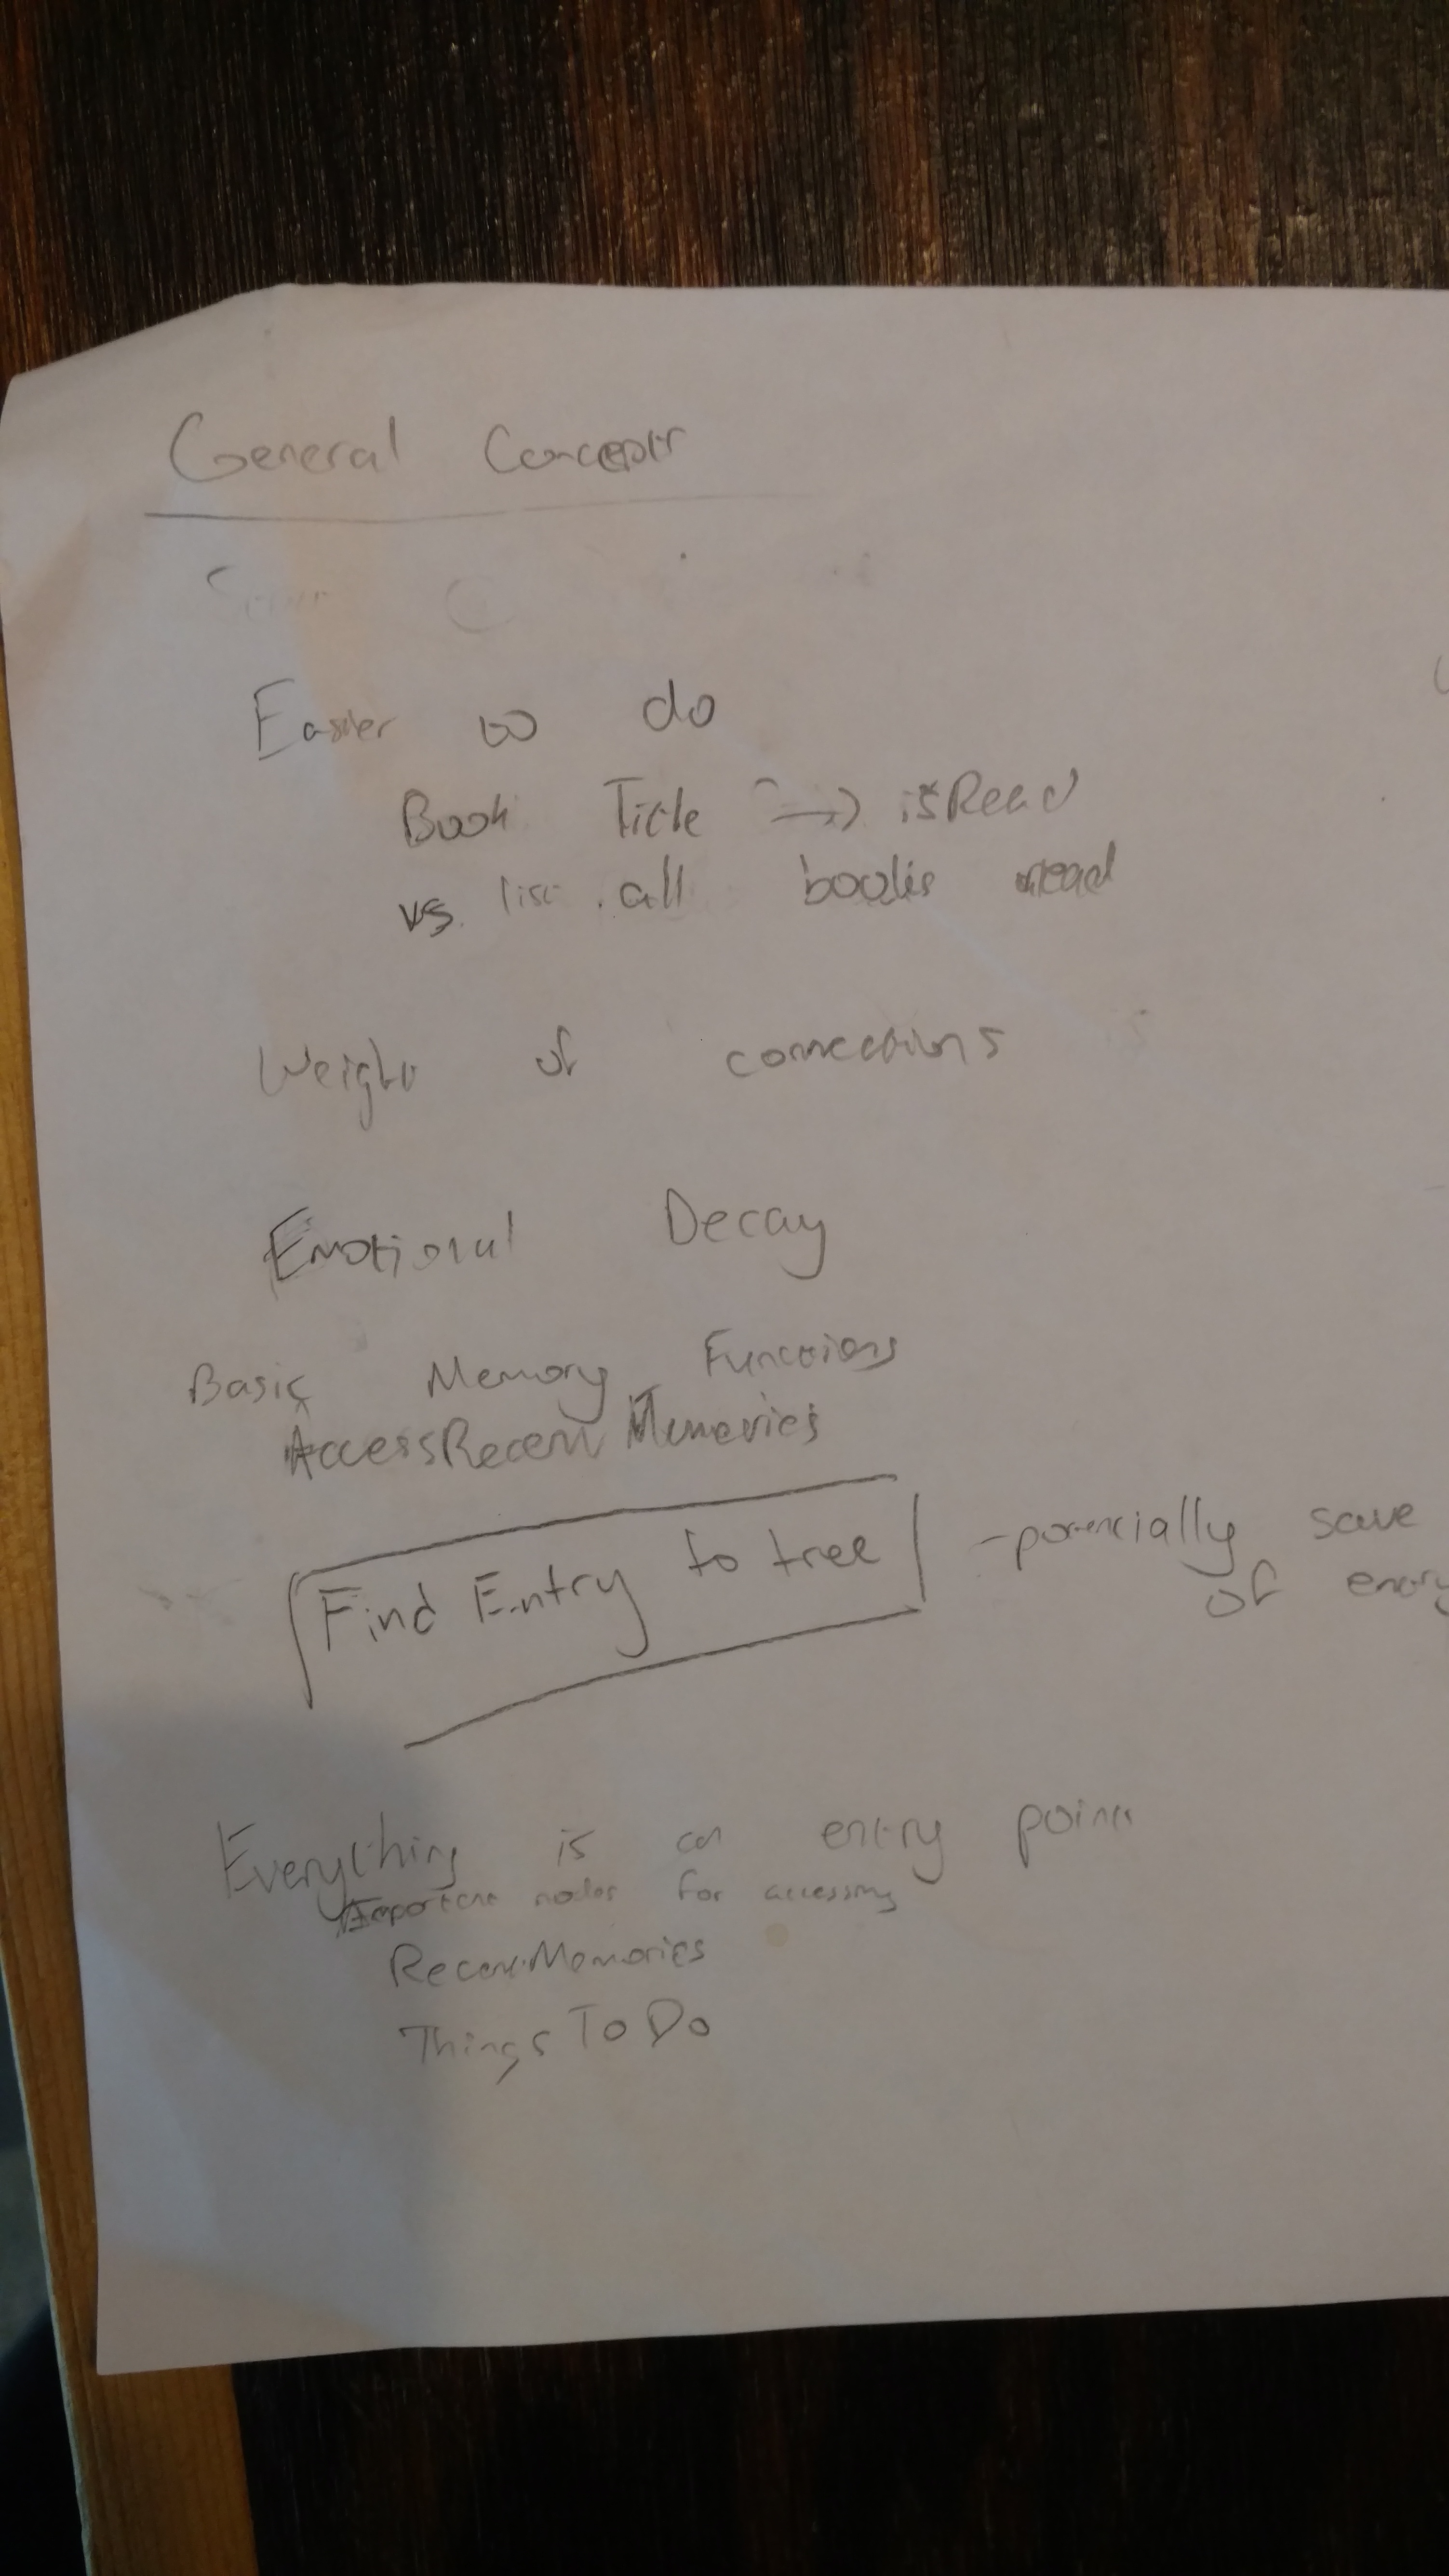 General Concepts
Easier to do
Book Title → isRead
vs. list all books read
Weight of connections
Emotional Decay
Basic Memory Functions
AccessRecentMemories
Find Entry to tree - potentially save
of entry
Everything is an entry point
Important nodes for accessing
RecentMemories
ThingsToDo